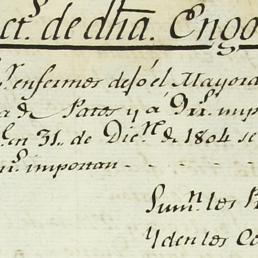 ct.s de dha. Engo
enfermos dejó el Mayora
a de Pates y a Dii.s imp
en 31. de Dic.re de 1804 se
importan
Sum.n los P
Yden los Ca